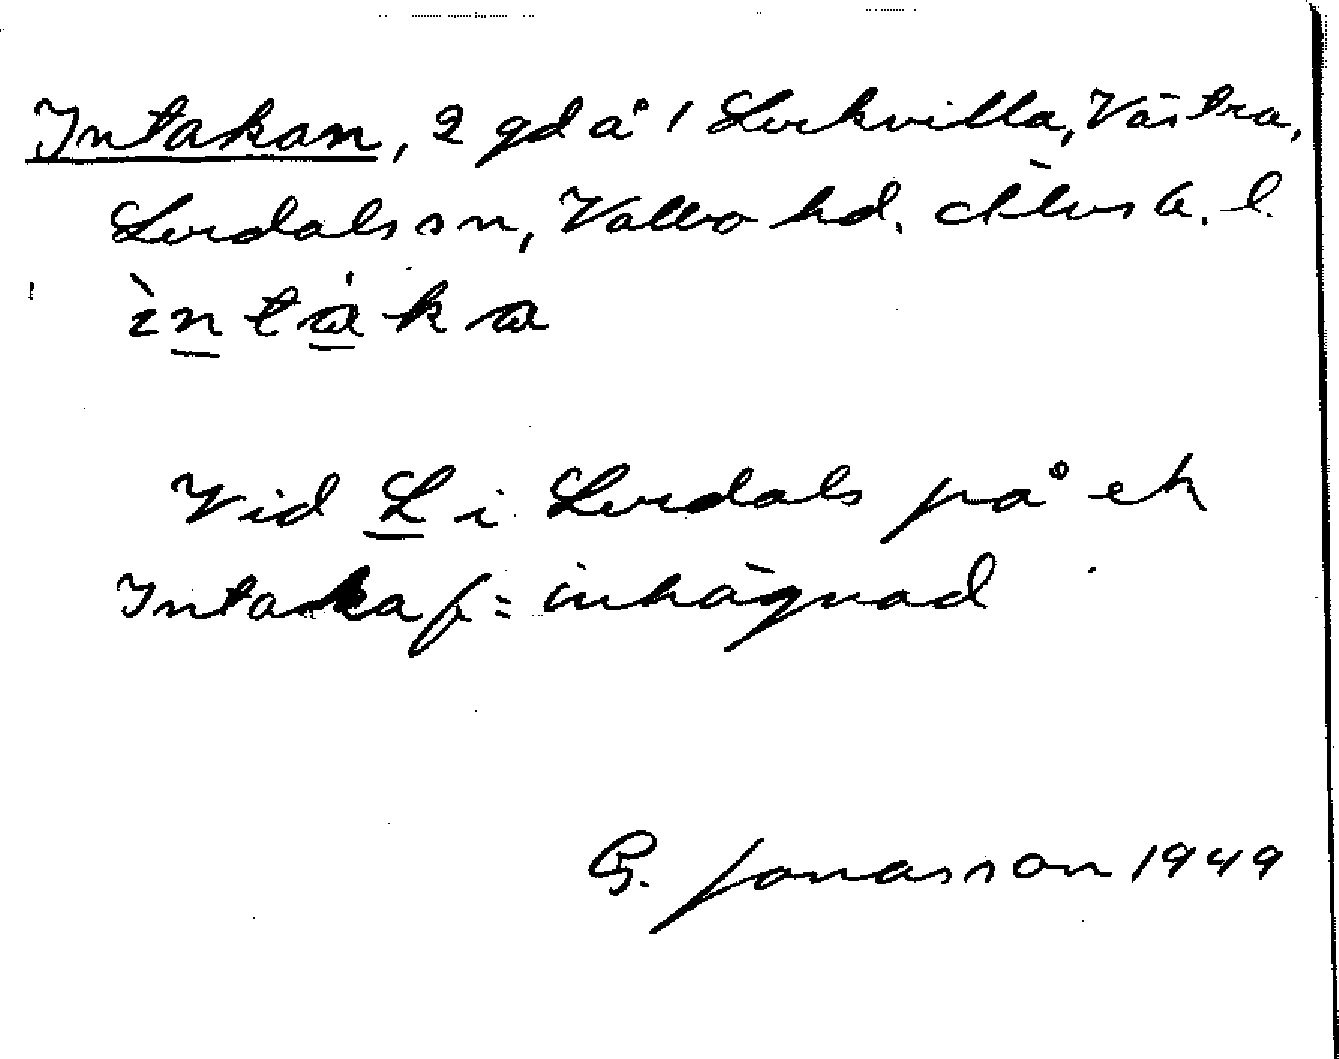 Intakan, 2 gd å 1 Lerkvilla, Västra,
Lerdals sn, Valbo hd. Älvsb. l.
ìntáka
Vid L i Lerdals på ek
Intaka f = inhägnad
G. Jonasson 1949